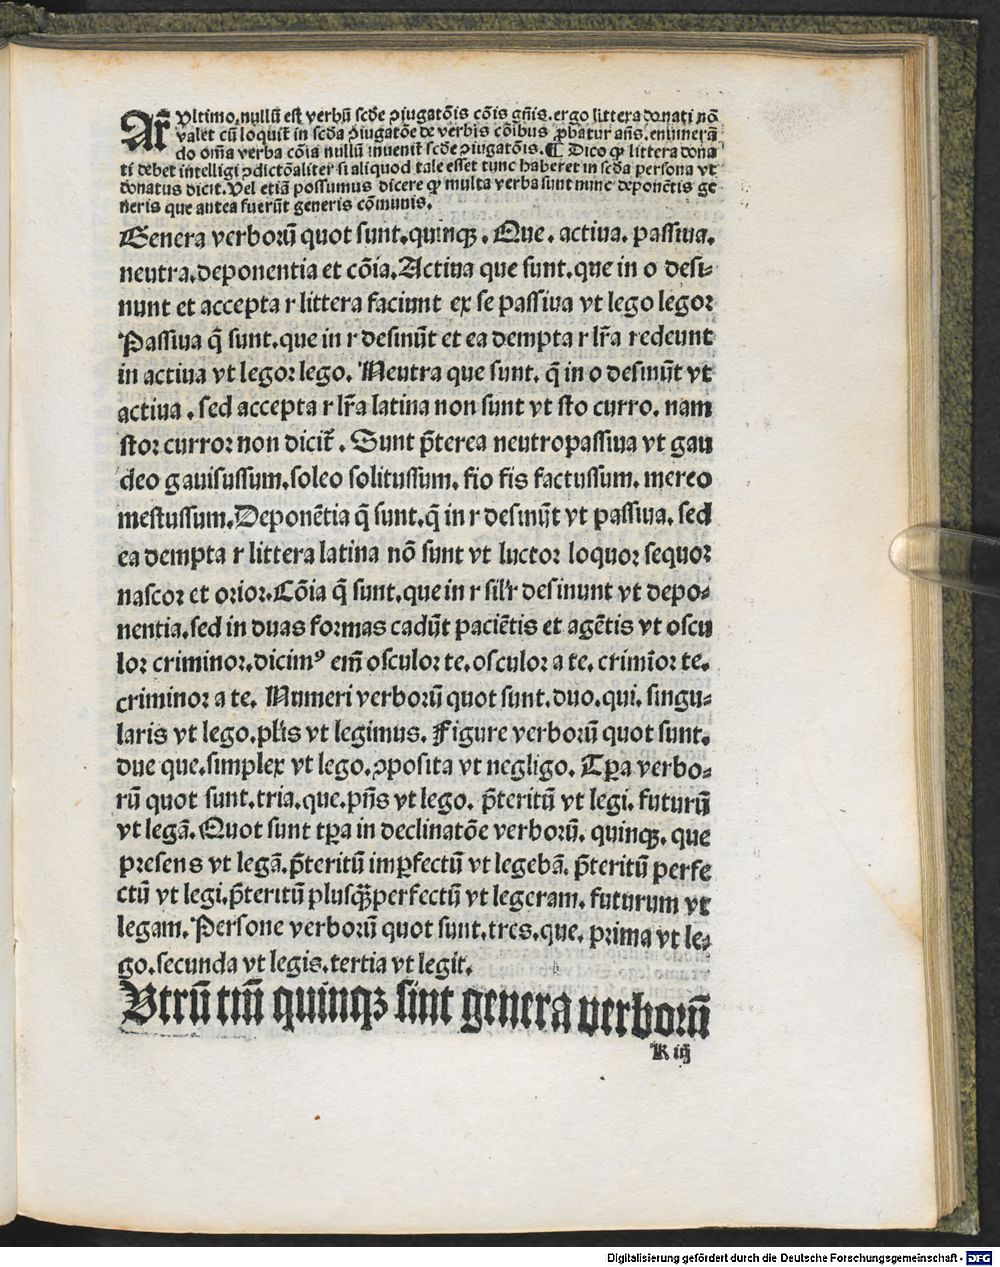 Ar̃ Vltimo. nullū est verbū scde ɔiugatōis cōis gn̄is. ergo littera donati nō
valet cū loquit̃ in scda ɔiugatōe de verbis cōibus ꝓbatur an̄s. enumerā
do om̄a verba cōia nullū inuenit̃ scde ɔiugatōis. ¶ Dico ꝙ littera dona
ti debet intelligi ɔdictōaliter si aliquod tale esset tunc haberet in scda persona vt
donatus dicit. Vel etiā possumus dicere ꝙ multa verba sunt nunc deponētis ge
neris que antea fuerūt generis cōmunis.
Genera verborū quot sunt. quinqꝫ. Que. actiua. passiua.
neutra. deponentia et cōia. Actiua que sunt. que in o desi⸗
nunt et accepta r littera faciunt ex se passiua vt lego legor
Passiua q̄ sunt. que in r desinūt et ea dempta r lr̄a redeunt
in actiua vt legor lego. Neutra que sunt. q̄ in o desinūt vt
actiua. sed accepta r lr̄a latina non sunt vt sto curro. nam
stor curror non dicit̃. Sunt p̄terea neutropassiua vt gau
deo gauisussum. soleo solitussum. fio fis factussum. mereo
mestussum. Deponētia q̄ sunt. q̄ in r desinūt vt passiua. sed
ea dempta r littera latina nō sunt vt luctor loquor sequor
nascor et orior. Cōia q̄ sunt. que in r sil'r desinunt vt depo⸗
nentia. sed in duas formas cadūt paciētis et agētis vt oscu
lor criminor. dicimꝰ em̄ osculor te. osculor a te. crimīor te.
criminor a te. Numeri verborū quot sunt. duo. qui. singu⸗
laris vt lego. pl'is vt legimus. Figure verborū quot sunt.
due que. simplex vt lego. ɔposita vt negligo. Tꝑa verbo⸗
rū quot sunt. tria. que. pn̄s vt lego. p̄teritū vt legi. futurū
vt legā. Quot sunt tꝑa in declinatōe verborū. quinqꝫ. que
presens vt legā. p̄teritū imꝑfectū vt legebā. p̄teritū perfe
ctū vt legi. p̄teritū plusqꝫ̄perfectū vt legeram. futurum vt
legam. Persone verborū quot sunt. tres. que. prima vt le⸗
go. secunda vt legis. tertia vt legit.
Vtrū tm̄ quinqꝫ sint genera verborū
K iij
Digitalisierung gefördert durch die Deutsche Forschungsgemeinschaft - DFG